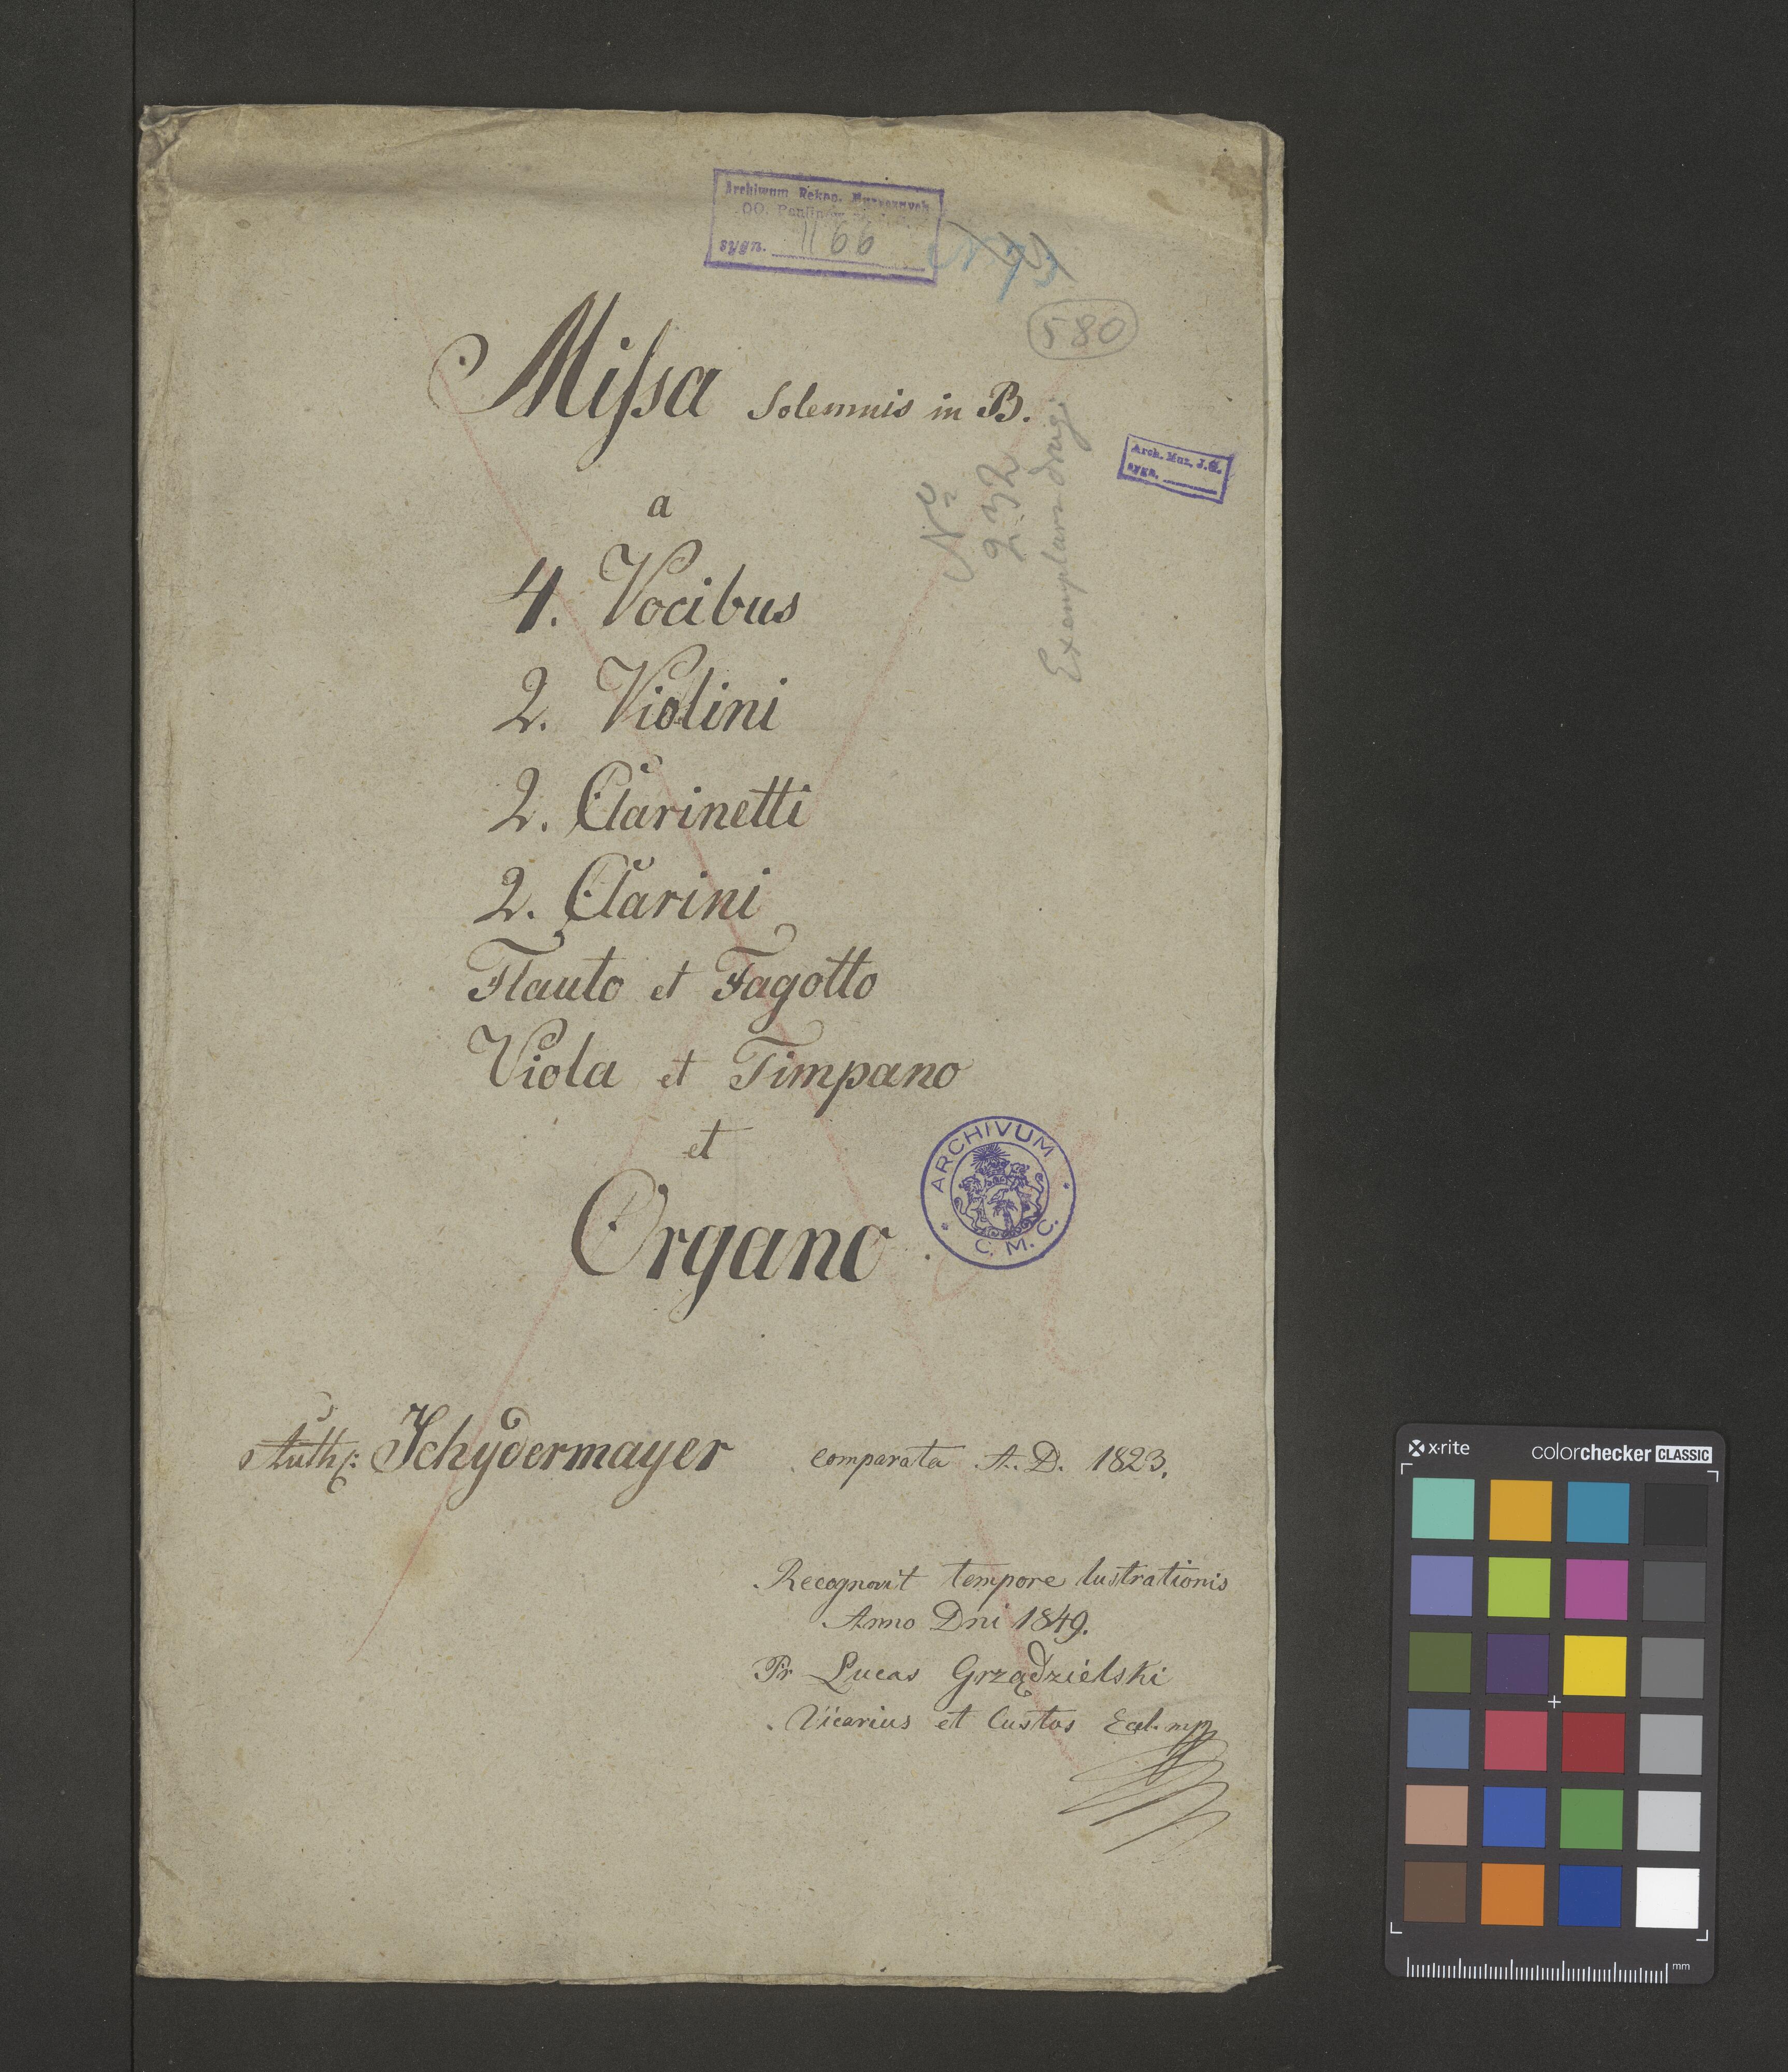 Archiwum Rękop. Muzycznych
OO. Paulinów
sygn. II 66
N 93
580
Missa Solemnis in B.
a
4. Vocibus
2. Violini
2. Clarinetti
2. Clarini
Flauto et Fagotto
Viola et Timpano
et
Organo
No
232
Exemplarz drugi
Arch. Muz. J.G.
sygn.
ARCHIVUM
C. M. C.
Auth: Schydermayer comparata A. D. 1823.
Recognovit tempore lustrationis
Anno Dni 1849.
Pr Lucas Grządzielski
Vicarius et Custos Eccl. mp
x-rite
colorchecker CLASSIC
mm